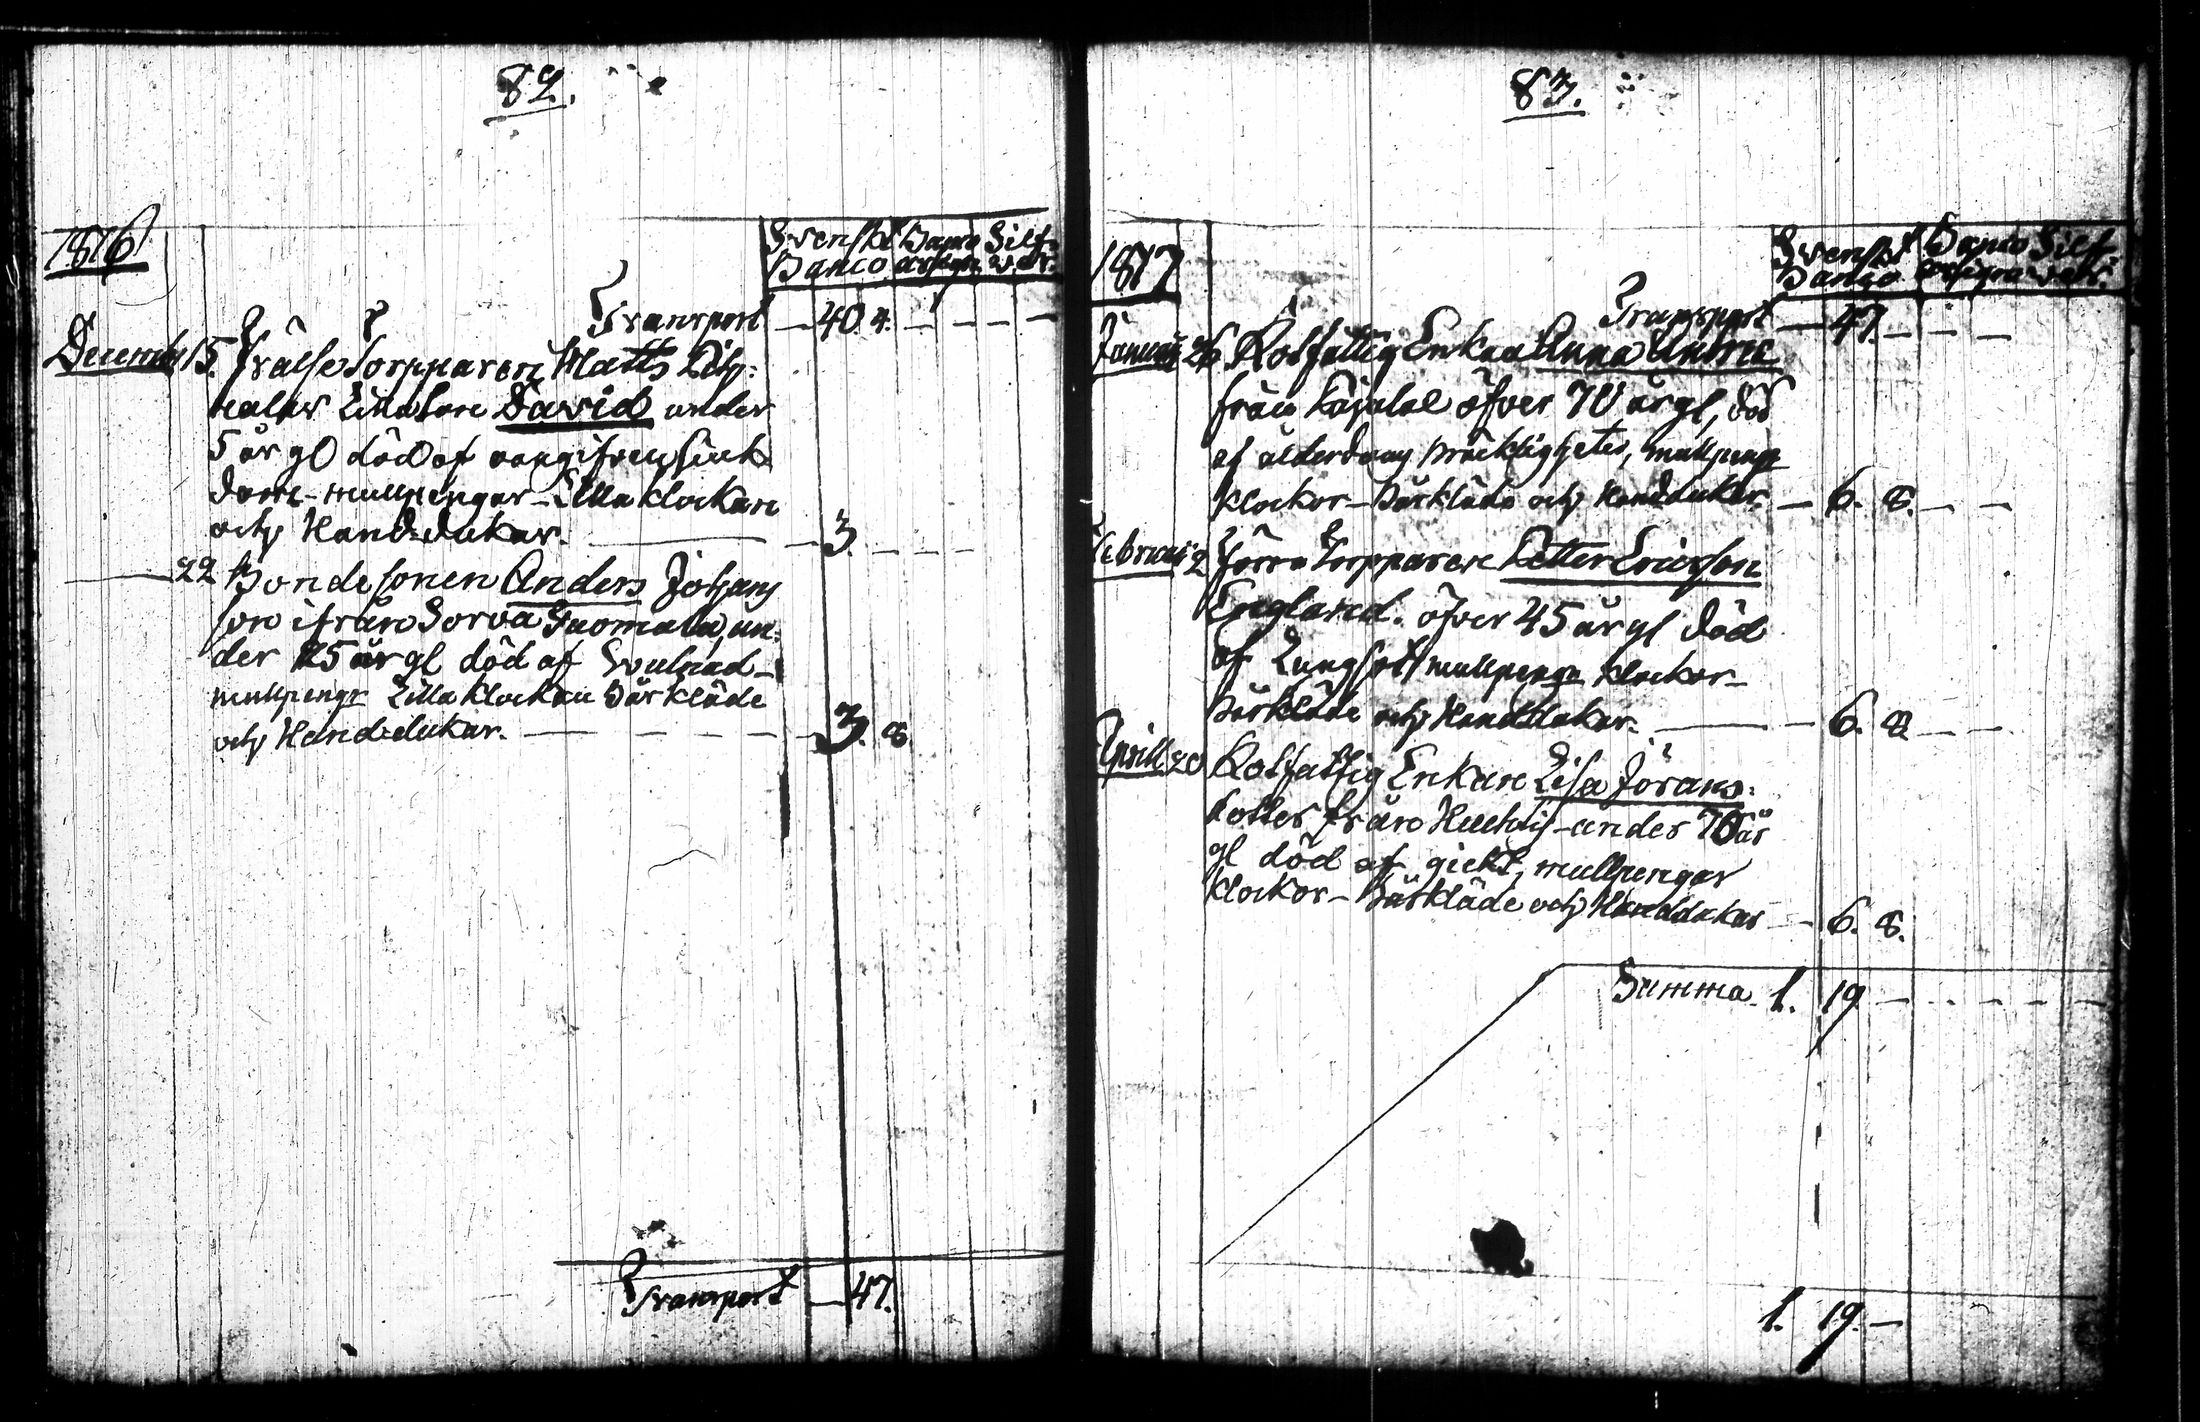 82.
1816
Svenskt Banco Silf-
Banco assign. ver.
Transport — 40. 4. — — — —
December 15. Frälse Torpparen Matts
Lilla Son David under
5 år gl död af sjuk
dom - mullpengar - Lilla klockan
och Handdukar. — 3. — — —
22 Bonde sonen Anders Johans
son ifrån Sorva Suomala, un-
der 25 år gl död af
mullpengr Lilla Klockan Bårkläde
och Handdukar. — 3. 8.
Transport — 47.
83.
1817
Svenskt Banco Silf-
Banco assigna ver.
Transport — 47. — — —
Januari 26 Rotfattig Enkan Anna
från öfver 70 år gl, död
af ålderdoms bräckligheter, mullpengr
klockor - Bårkläde och Handdukar. — 6. 8. — —
Februari 2 Förra Torpparen Petter Ericsson
Englund. öfver 45 år gl död
af Lungsot mullpengr klockor -
Bårkläde och Handdukar. — 6. 8. — —
Aprill 20 Rotfattig Enkan Lisa Jörans-
dotter från under 70 år
gl död af gickt, mullpengar
klockor - Bårkläde och Handdukar — 6. 8.
Summa 1. 19 — — — — —
1. 19. —